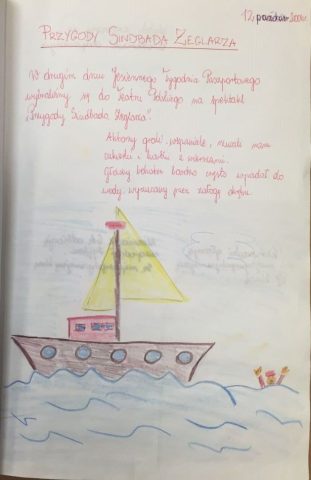 12, październik 2006r.
PRZYGODY SINDBADA ŻEGLARZA
W drugim dniu Jesiennego Tygodnia Paszportowego
wybraliśmy się do Teatru Polskiego na spektakl
"Przygody Sindbada Żeglarza".
Aktorzy grali wspaniale, rzucali nam
cukierki i kartki z wierszami.
Główny bohater bardzo często wypadał do
wody, wyrzucany przez załogę okrętu.